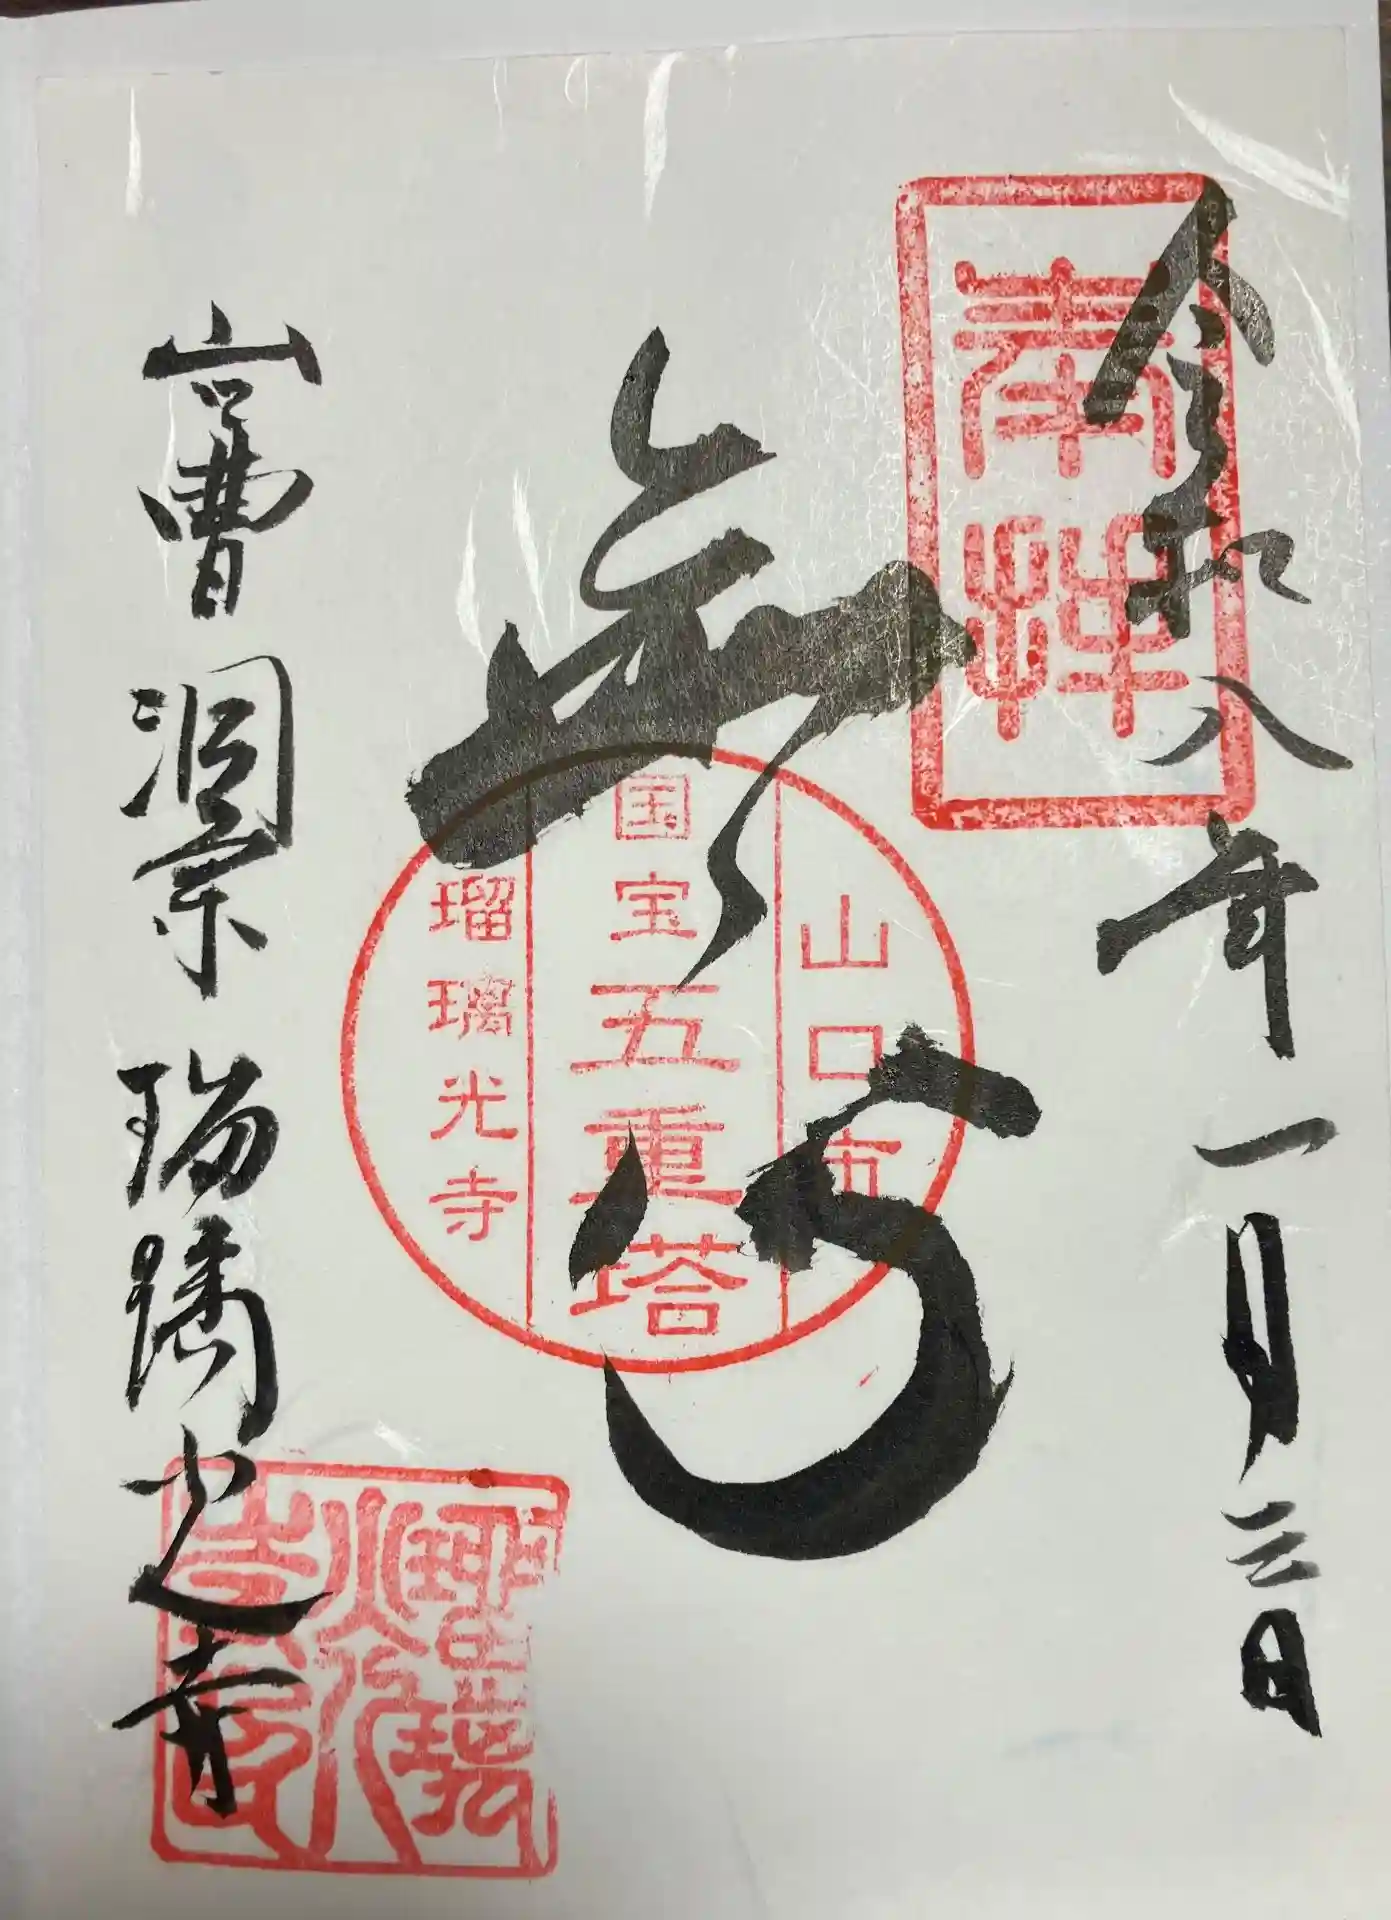 奉拝
令和八年一月三日
山口市
国宝五重塔
瑠璃光寺
山口曹洞宗瑠璃光寺